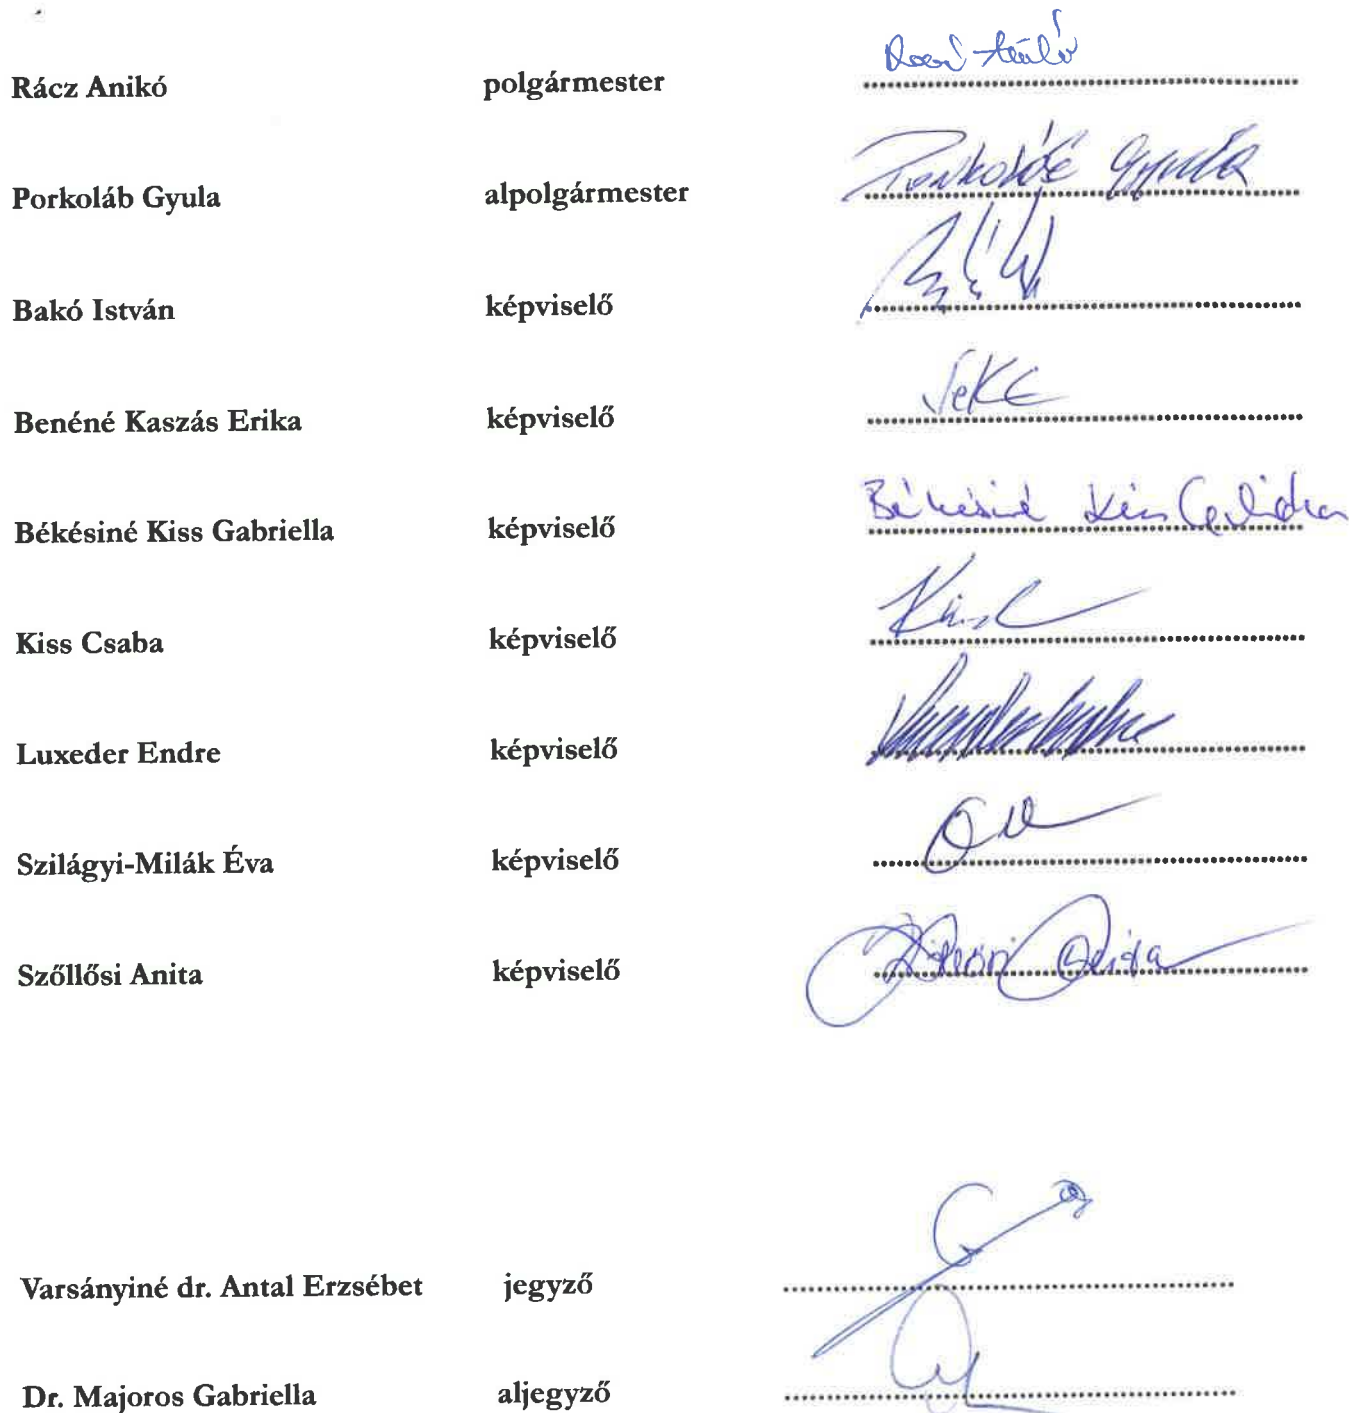 Rácz Anikó polgármester
Porkoláb Gyula alpolgármester Porkoláb Gyula
Bakó István képviselő
Benéné Kaszás Erika képviselő
Békésiné Kiss Gabriella képviselő Békésiné Kiss Gabriella
Kiss Csaba képviselő
Luxeder Endre képviselő
Szilágyi-Milák Éva képviselő
Szőllősi Anita képviselő
Varsányiné dr. Antal Erzsébet jegyző
Dr. Majoros Gabriella aljegyző